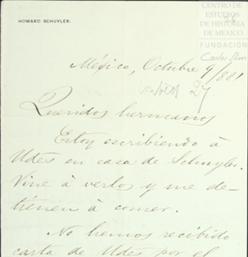 HOWARD SCHUYLER.
CENTRO DE
ESTUDIOS
DE HISTORIA
DE MEXICO
FUNDACIÓN
Carlos Slim
México, Octubre 9/881
27
Queridos hermanos
Estoy escribiendo á
Udes en casa de Schuyler.
Vine á verlos y me de-
tienen á comer.
No hemos recibido
carta de Udes por el